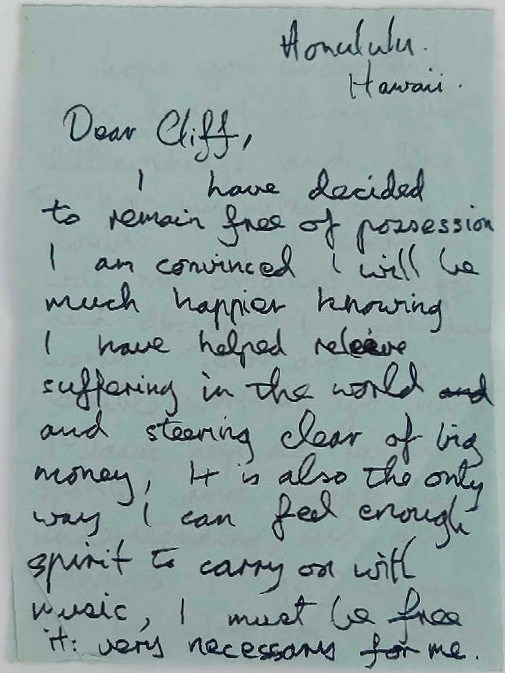 Honululu.
Hawaii.
Dear Cliff,
I have decided
to remain free of possession
I am convinced I will be
much happier knowing
I have helped releive
suffering in the world and
and steering clear of big
money, It is also the only
way I can feel enough
spirit to carry on with
music, I must be free
it: very necessary for me.